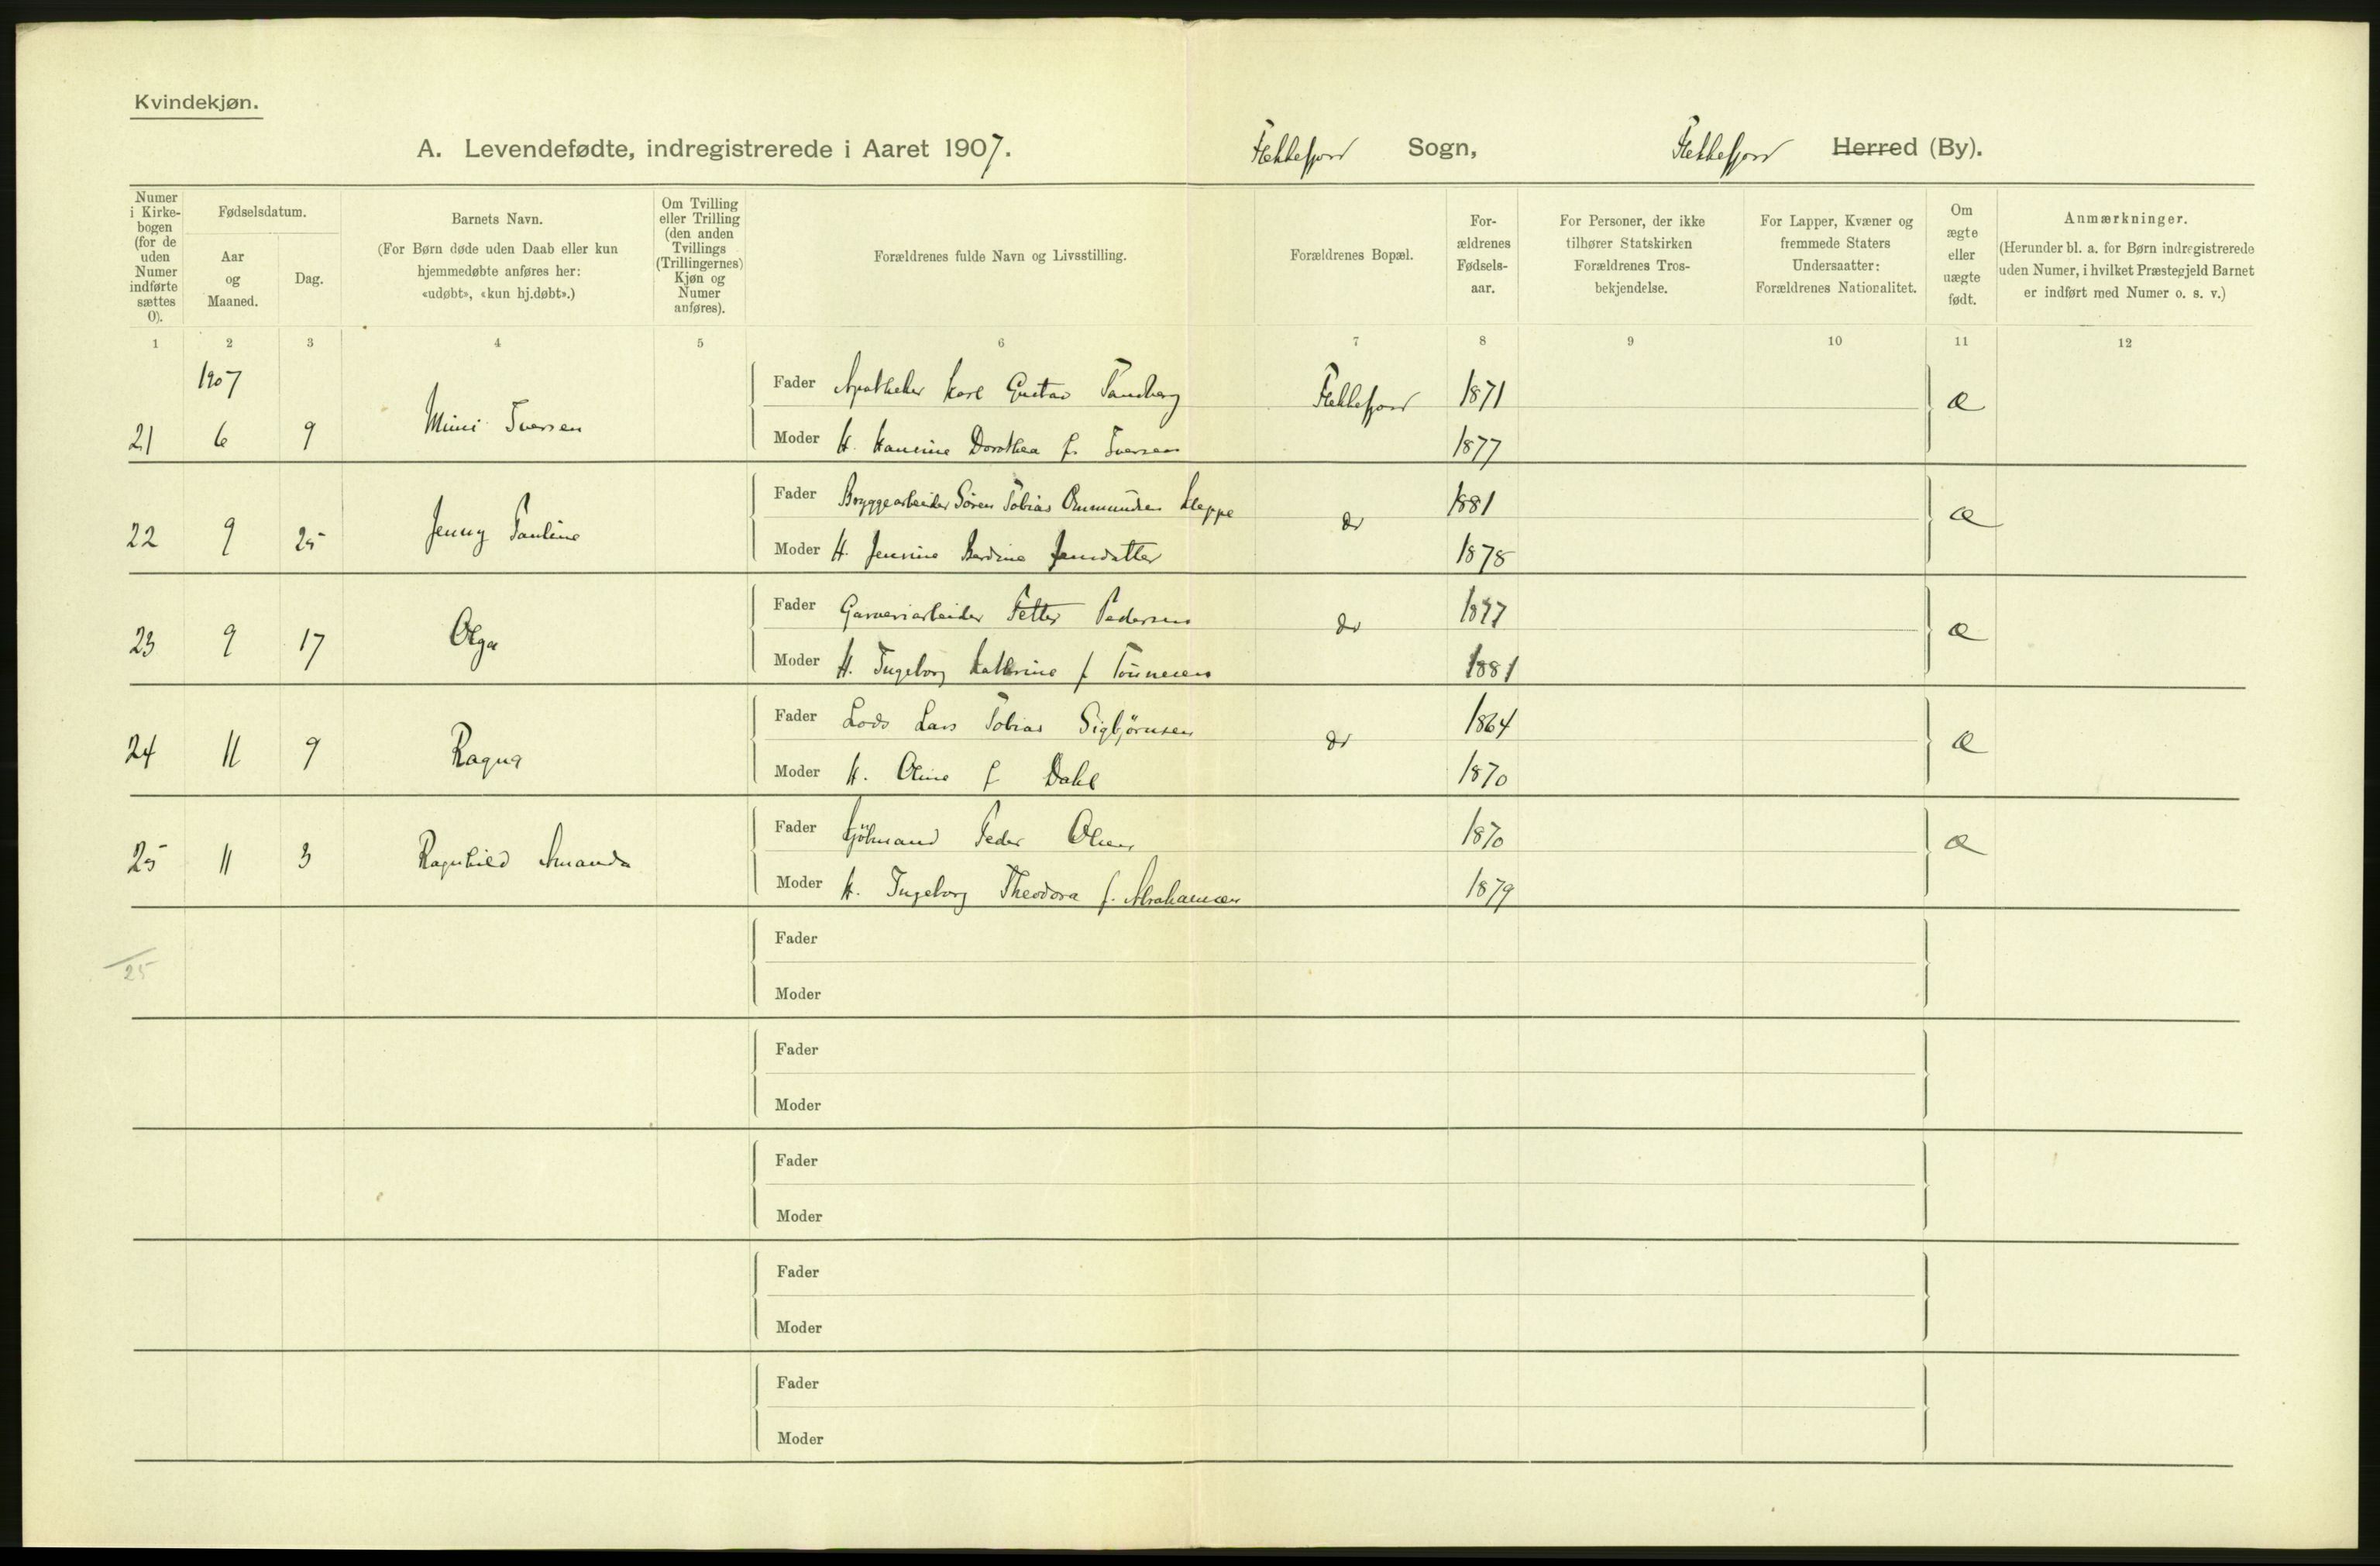 Kvindekjøn.
A. Levendefødte, indregistrerede i Aaret 1907. Flekkefjord Sogn, Flekkefjord Herred (By).
Numer i Kirkebogen (for de uden Numer indførte sættes 0).
Fødselsdatum.
Aar og Maaned.
Dag.
Barnets Navn.
(For Børn døde uden Daab eller kun hjemmedøbte anføres her: «udøbt», «kun hj.døbt».)
Om Tvilling eller Trilling (den anden Tvillings (Trillingernes) Kjøn og Numer anføres).
Forældrenes fulde Navn og Livsstilling.
Forældrenes Bopæl.
For-ældrenes Fødsels-aar.
For Personer, der ikke tilhører Statskirken Forældrenes Tros-bekjendelse.
For Lapper, Kvæner og fremmede Staters Undersaatter: Forældrenes Nationalitet.
Om ægte eller uægte født.
Anmærkninger.
(Herunder bl. a. for Børn indregistrerede uden Numer, i hvilket Præstegjeld Barnet er indført med Numer o. s. v.)
1 2 3 4 5 6 7 8 9 10 11 12
1907
21 6 9 Mimi Iversen Fader Apotheker Karl Gustav Tandberg Flekkefjord 1871 æ
Moder H. Hansine Dorothea f. Iversen 1877
22 9 25 Jenny Pauline Fader Bryggearbeider Sören Tobias Ommundsen Kleppe do 1881 æ
Moder H. Jensine Berdine Jensdatter 1878
23 9 17 Olga Fader Garveriarbeider Petter Pedersen do 1877 æ
Moder H. Ingeborg Kathrine f Tönnesen 1881
24 11 9 Ragna Fader Lods Lars Tobias Sigbjörnsen do 1864 æ
Moder H. Oline f Dahl 1870
25 11 3 Ragnhild Amanda Fader Sjömand Peder Olsen 1870 æ
Moder H. Ingeborg Theodora f. Abrahamsen 1879
25
Fader
Moder
Fader
Moder
Fader
Moder
Fader
Moder
Fader
Moder